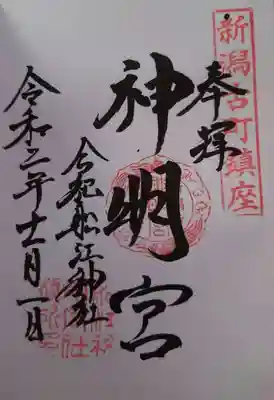 新潟古町鎮座
奉拝
神明宮
合祀船江神社
令和二年十一月一日